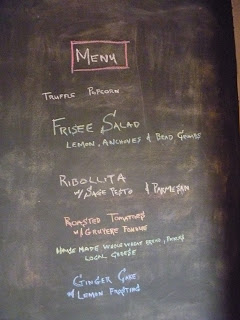 MENU
TRUFFLE POPCORN
FRISEE SALAD
LEMON, ANCHOVIES & BEAD GOUGRS
RIBOLLITA
W/ SAGE PESTO & PARMESAN
ROASTED TOMATOES
W/ GRUYERE FONDUE
HOUSE MADE WHOLE WHEAT BREAD,
LOCAL CHEESE
GINGER CAKE
W/ LEMON FROSTING